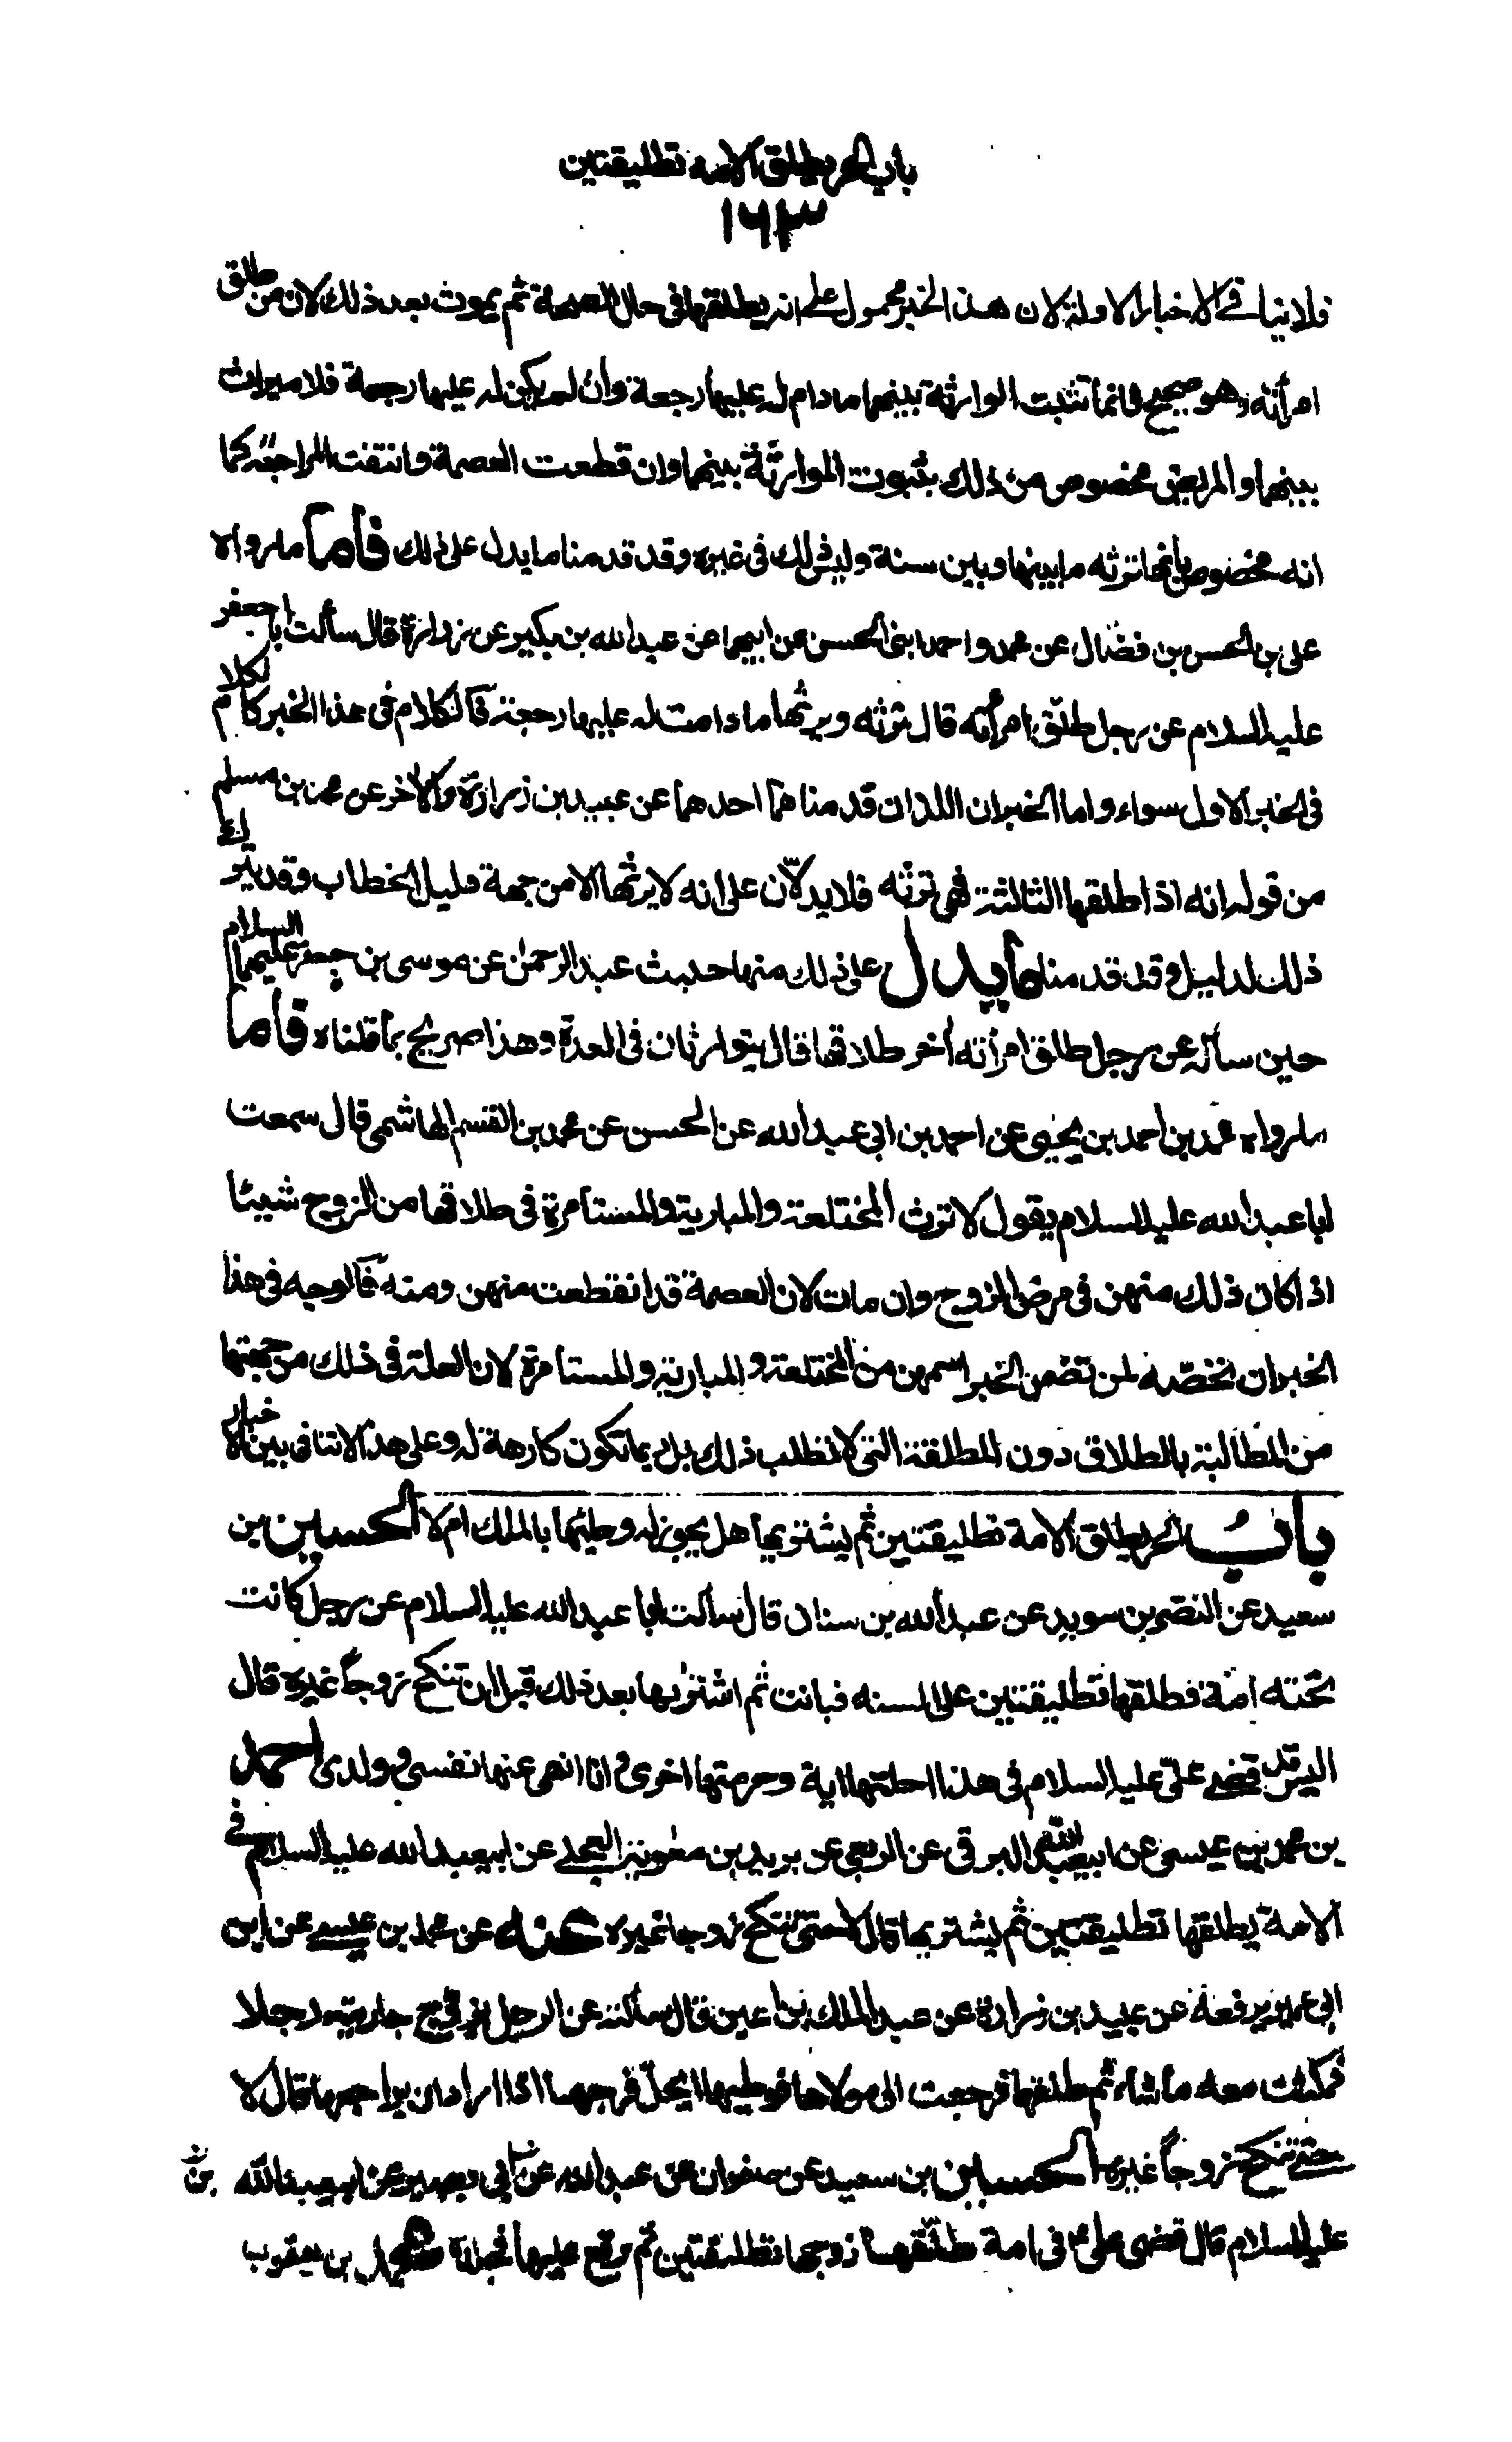 باب الحر يطلق الامة تطليقتين
١٦٣
فلا ينافي الاخبار الاولة لان هذا الخبر محمول على انه يطلقها فى حال الصحة ثم يموت بعد ذلك لان من طلق
امرأته وهو صحيح فانما تثبت الموارثة بينهما مادام له عليها رجعة وان لم يكن له عليها رجعة فلا ميراث
بينهما والمريض مخصوص من ذلك بثبوت الموارثة بينهما وان قطعت العصمة وانتفت المراجعة كما
انه مخصوص بأنها ترثه ما بينها وبين سنة وليس ذلك فى غيره وقد قدمنا ما يدل على ذلك فاما ما رواه
على بن الحسن بن فضّال عن محمد واحمد ابنى الحسن عن ابيهما عن عبدالله بن بكير عن زرارة قال سألت ابا جعفر
عليه السلام عن رجل طلّق امرأته قال ترثه ويرثها ما دامت له عليها رجعة فالكلام فى هذا الخبر كالكلام
فى الخبر الاول سواء واما الخبران اللذان قدمناهما احدهما عن عبيد بن زرارة والآخر عن محمد بن مسلم
من قوله انه اذا طلقها الثالثة فهى ترثه فلا يدلّان على انه لا يرثها الا من جهة دليل الخطاب وقد يترك
ذلك لدليل وقد قدمنا ما يدل على ذلك منها حديث عبد الرحمن عن موسى بن جعفر عليهما السلام
حين سأله عن رجل طلق امرأته آخر طلاقها قال يتوارثان فى العدة وهذا صريح بما قلناه فاما
ما رواه محمد بن أحمد بن يحيى عن احمد بن ابى عبدالله عن الحسن عن محمد بن القسم الهاشمى قال سمعت
ابا عبدالله عليه السلام يقول لا ترث المختلعة والمبارية والمستأمرة فى طلاقها من الزوج شيئا
اذا كان ذلك منهن فى مرض الزوج وان مات لان العصمة قد انقطعت منهن ومنه فالوجه فى هذا
الخبر ان نخصّه لمن تضمن الخبر اسمهن من المختلعة والمبارية والمستامرة لان العلة فى ذلك من جهتها
من المطالبة بالطلاق دون المطلقة التى لا تطلب ذلك بل ربما تكون كارهة له وعلى هذا لا تنافى بين الاخبار
باب الحر يطلق الامة تطليقتين ثم يشتريها هل يجوز له وطيها بالملك ام لا الحسين بن
سعيد عن النضر بن سويد عن عبدالله بن سنان قال سألت ابا عبدالله عليه السلام عن رجل كانت
تحته امة فطلقها تطليقتين على السنه فبانت ثم اشتريها بعد ذلك قبل ان تنكح زوجاً غيره قال
اليس قد قضى علىّ عليه السلام فى هذا احلتها اية وحرمتها اخرى وانا انهى عنها نفسى وولدى احمد
بن محمد بن عيسى عن ابيعبدالله البرقى عن الربعى عن بريد بن معوية العجلي عن ابيعبدالله عليه السلام في
الامة يطلقها تطليقتين ثم يشتريها قال لا حتى تنكح زوجا غيره عنه عن محمد بن عيسى عن ابن
ابى عمير يرفعه عن عبيد بن زرارة عن عبد الملك بن اعين قال سألته عن الرجل يزوّج جاريته رجلا
فمكثت معه ما شاء ثم طلقها فرجعت الى مولاها فوطيها ايحلّ فرجها اذا اراد ان يراجعها قال لا
حتى تنكح زوجاً غيره الحسين بن سعيد عن صفوان عن عبدالله عن ابى بصير عن ابيعبدالله
عليه السلام قال قضى علىّ فى امة طلّقها زوجها تطليقتين ثم وقع عليها فجلده محمد بن يعقوب